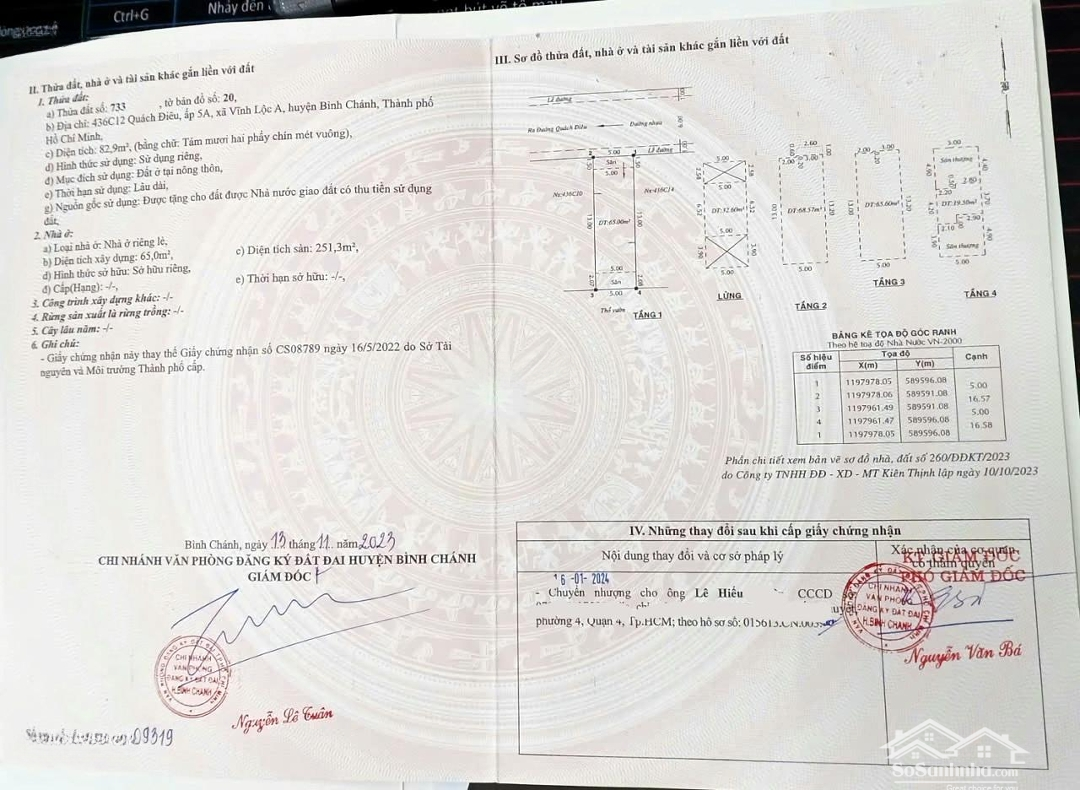 Ctrl+G
Nhảy đến
II. Thửa đất, nhà ở và tài sản khác gắn liền với đất
1. Thửa đất:
a) Thửa đất số: 733 , tờ bản đồ số: 20,
b) Địa chỉ: 436C12 Quách Điêu, ấp 5A, xã Vĩnh Lộc A, huyện Bình Chánh, Thành phố
Hồ Chí Minh,
c) Diện tích: 82,9m², (bằng chữ: Tám mươi hai phẩy chín mét vuông),
d) Hình thức sử dụng: Sử dụng riêng,
đ) Mục đích sử dụng: Đất ở tại nông thôn,
e) Thời hạn sử dụng: Lâu dài,
g) Nguồn gốc sử dụng: Được tặng cho đất được Nhà nước giao đất có thu tiền sử dụng
đất,
2. Nhà ở:
a) Loại nhà ở: Nhà ở riêng lẻ,
b) Diện tích xây dựng: 65,0m², c) Diện tích sàn: 251,3m²,
d) Hình thức sở hữu: Sở hữu riêng,
đ) Cấp(Hạng): -/-, e) Thời hạn sở hữu: -/-,
3. Công trình xây dựng khác: -/-
4. Rừng sản xuất là rừng trồng: -/-
5. Cây lâu năm: -/-
6. Ghi chú:
- Giấy chứng nhận này thay thế Giấy chứng nhận số CS08789 ngày 16/5/2022 do Sở Tài
nguyên và Môi trường Thành phố cấp.
Bình Chánh, ngày 13 tháng 11 năm 2023
CHI NHÁNH VĂN PHÒNG ĐĂNG KÝ ĐẤT ĐAI HUYỆN BÌNH CHÁNH
GIÁM ĐỐC
CHI NHÁNH
VĂN PHÒNG
ĐĂNG KÝ ĐẤT ĐAI
H.BÌNH CHÁNH
Nguyễn Lê Tuân
09319
III. Sơ đồ thửa đất, nhà ở và tài sản khác gắn liền với đất
Lề đường
Ra Đường Quách Điêu
Đường nhựa
Lề đường
5.00
Sân
5.00
Nc:436C10
Nc:436C14
13.00
DT:65.00m²
13.00
5.00
2.07
Sân
2.08
5.00
Thổ vườn
TẦNG 1
5.00
5.00
6.52
DT:32.60m²
6.52
5.00
5.00
LỬNG
2.60
2.00
3.00
13.00
DT:68.57m²
TẦNG 2
5.00
2.00
3.00
13.00
DT:65.60m²
13.20
5.00
TẦNG 3
3.00
Sân thượng
4.40
DT:19.30m²
Sân thượng
5.00
TẦNG 4
BẢNG KÊ TỌA ĐỘ GÓC RANH
Theo hệ toạ độ Nhà Nước VN-2000
Số hiệu điểm Tọa độ Cạnh
X(m) Y(m)
1 1197978.05 589596.08
5.00
2 1197978.06 589591.08
16.57
3 1197961.49 589591.08
5.00
4 1197961.47 589596.08
16.58
1 1197978.05 589596.08
Phần chi tiết xem bản vẽ sơ đồ nhà, đất số 260/ĐĐKT/2023
do Công ty TNHH ĐĐ - XD - MT Kiên Thịnh lập ngày 10/10/2023
IV. Những thay đổi sau khi cấp giấy chứng nhận
Nội dung thay đổi và cơ sở pháp lý
Xác nhận của cơ quan
có thẩm quyền
KT.GIÁM ĐỐC
PHÓ GIÁM ĐỐC
16 -01- 2024
- Chuyển nhượng cho ông Lê Hiếu CCCD
phường 4, Quận 4, Tp.HCM; theo hồ sơ số:
CHI NHÁNH
VĂN PHÒNG
ĐĂNG KÝ ĐẤT ĐAI
H.BÌNH CHÁNH
Nguyễn Văn Bá
SoSanhnha.com
Great choice for you